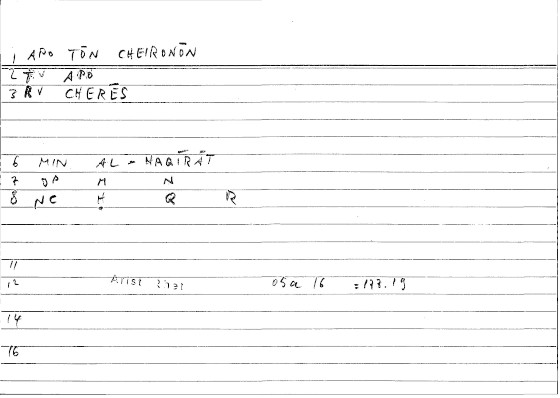 1 APO TŌN CHEIRONŌN
2 TV APO
3 RV CHERĒS
6 MIN AL-HAQĪRĀT
7 DP M N
8 NC Ḥ Q R
11
12 Arist Rhet 05a 16 =177.19
14
16